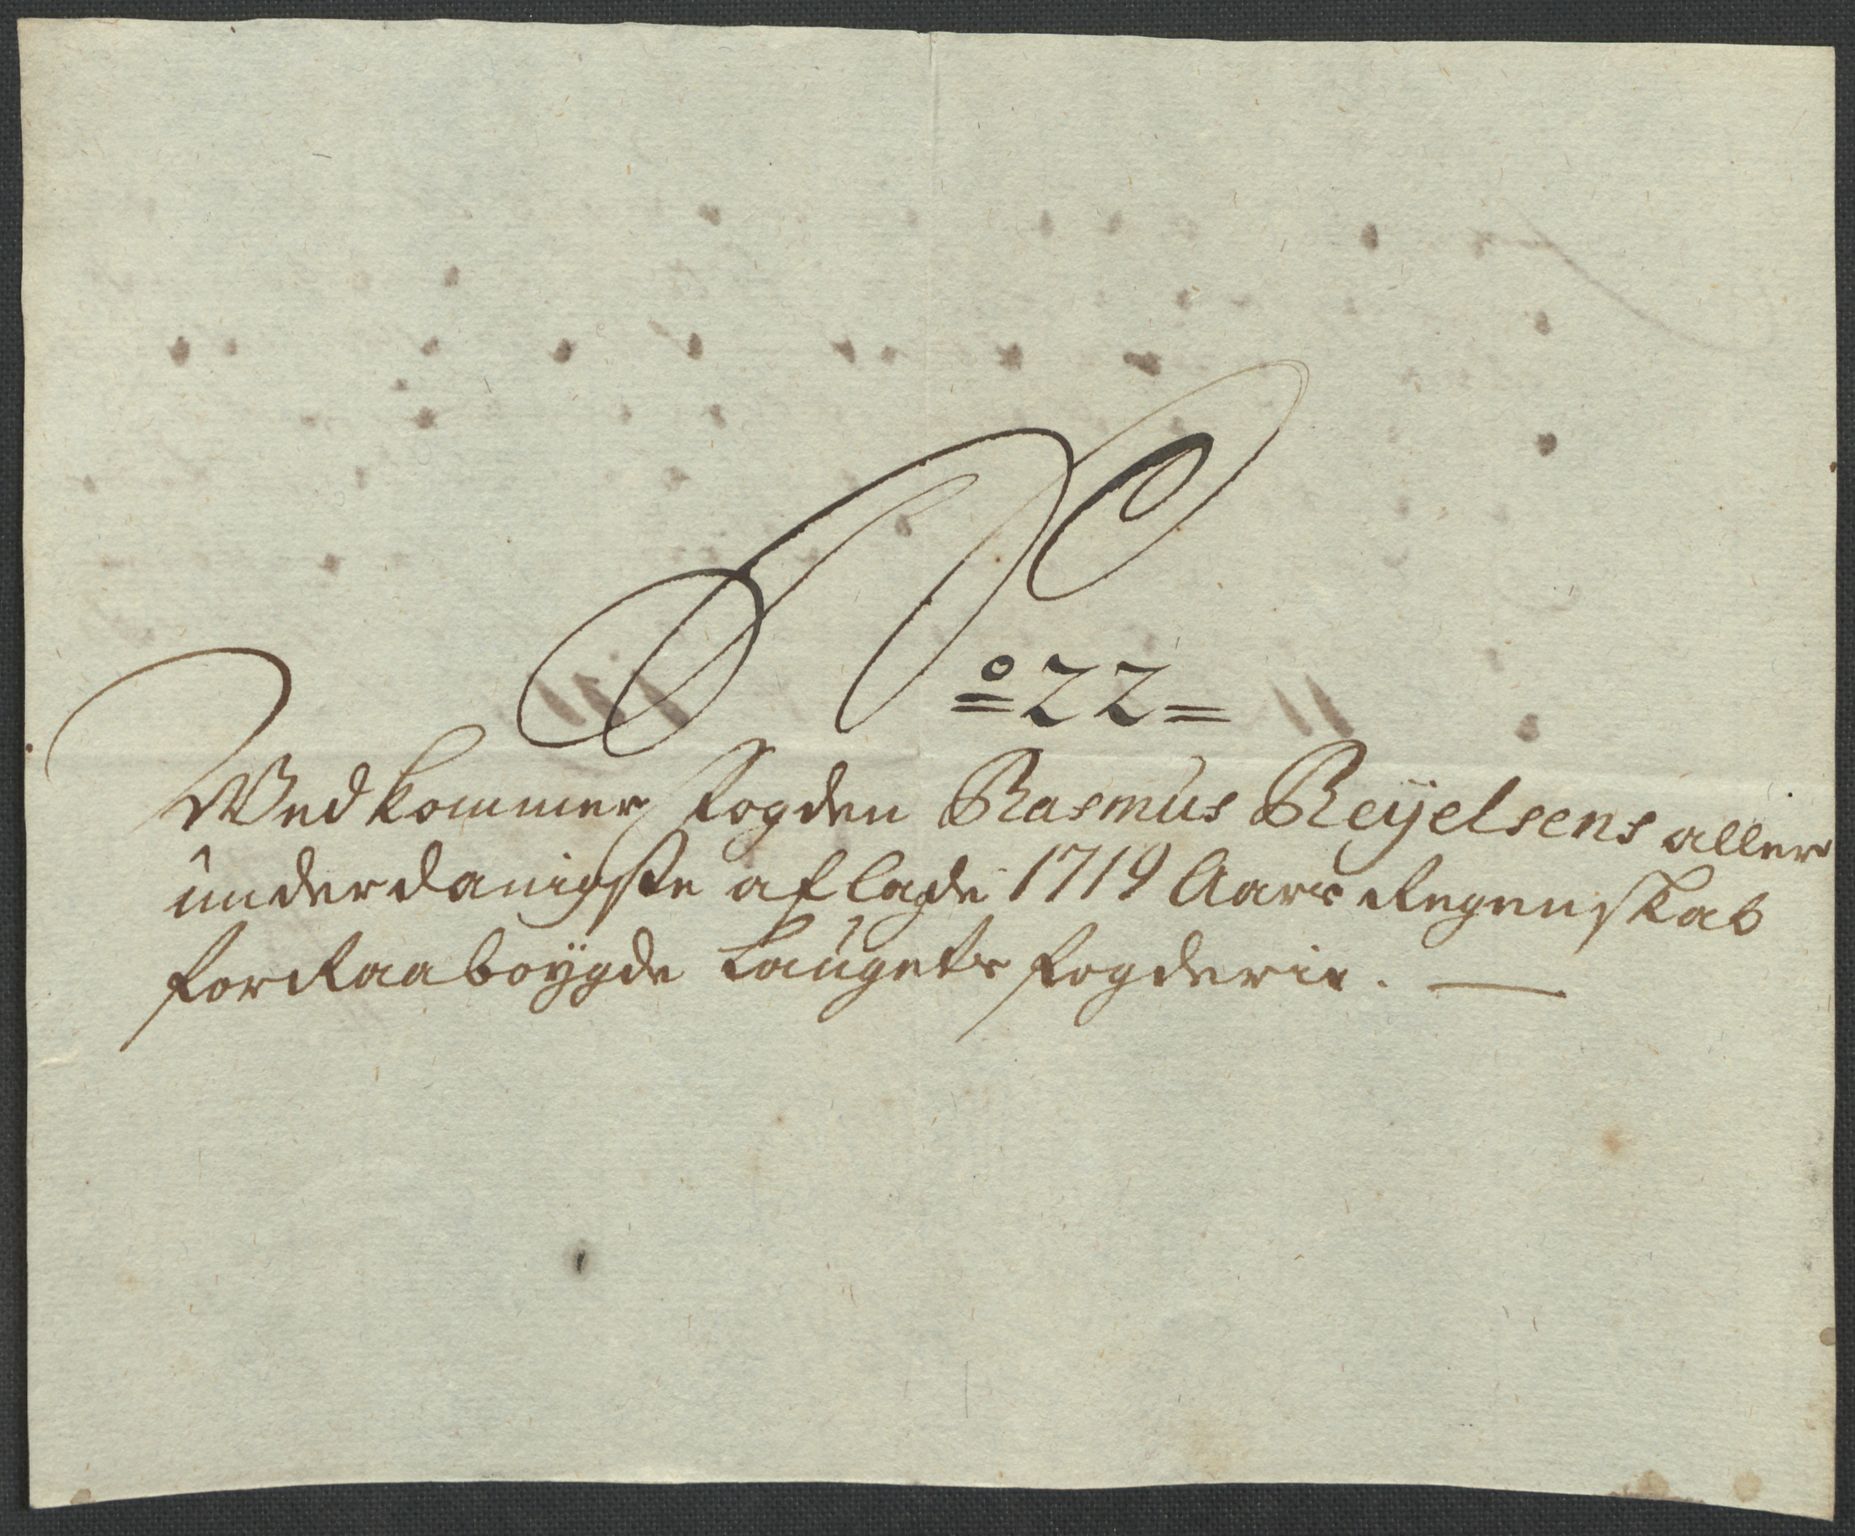 No 22
Vedkommer Fogden Rasmus Reyelsens aller
underdanigste aflagde 1719 Aars Regenskab
for Raaboÿgde Laugets fogderie.